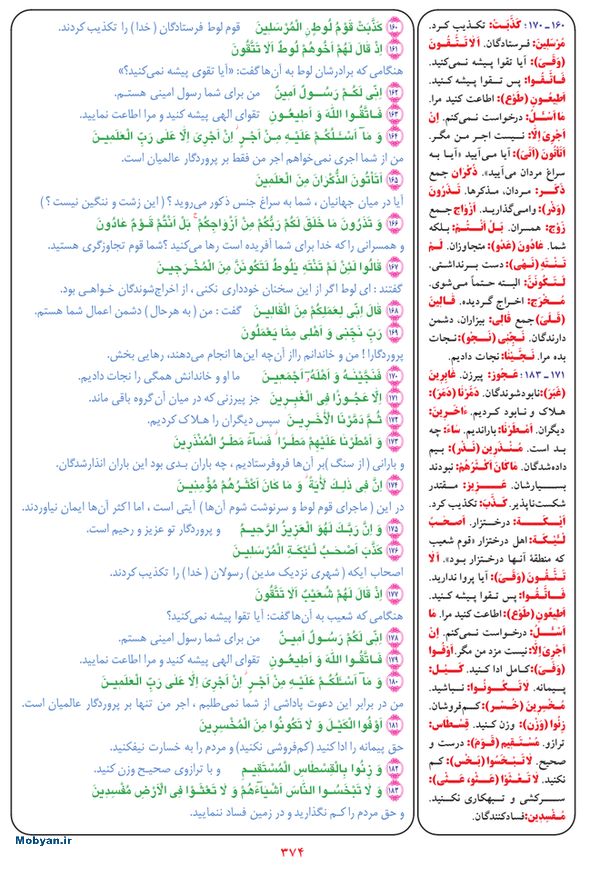 ۱۶۰ ـ ۱۷۰ : كَذَّبَتْ: تکذیب کرد.
مُرْسَلِينَ: فرستادگان. اَلا تَتَّقُونَ
(وَقَیَ): آیا تقوا پیشه نمی‌کنید.
فَاتَّقُوا: پس تقوا پیشه کنید.
اَطِيعُونِ (طَوَعَ): اطاعت کنید مرا.
ما اَسْئَلُ: درخواست نمی‌کنم. اِنْ
اَجْرِیَ اِلّا: نیست اجر من مگر.
اَتَأْتُونَ (اَتَیَ): آیا می‌آیید «آیا به
سراغ مردان می‌آیید». ذُكْران جمع
ذَكَر: مردان، مذکرها. تَذَرُونَ
(وَذَرَ): وامی‌گذارید. اَزْواج جمع
زَوْج: همسران. بَلْ اَنْتُمْ: بلکه
شما. عادُونَ (عَدَوَ): متجاوزان. لَمْ
تَنْتَهِ (نَهَیَ): دست برنداشتی.
لَتَكُونَنَّ: البته حتماً می‌شوی.
مُخْرَج: اخراج گردیده. قالِینَ
(قَلَیَ) جمع قالِی: بیزاران، دشمن
دارندگان. نَجِّنِی (نَجَوَ): نجات
بده مرا. نَجَّيْنا: نجات دادیم.
۱۷۱ ـ ۱۸۳ : عَجُوز: پیرزن. غابِرِینَ
(غَبَرَ): نابودشوندگان. دَمَّرْنا (دَمَرَ):
هلاک و نابود کردیم. ءاخَرِينَ:
دیگران. اَمْطَرْنا: باراندیم. ساءَ: چه
بد است. مُنْذَرِين (نَذَرَ): بیم
داده‌شدگان. ماكانَ اَكْثَرُهُمْ: نبودند
بسیارشان. عَزِیز: مقتدر
شکست‌ناپذیر. كَذَّبَ: تکذیب کرد.
اَيْكَة: درختزار. اَصْحٰبُ
لْئَيْكَةِ: اهل درختزار «قوم شعیب
که منطقه آنها درختزار بود». اَلا
تَتَّقُونَ (وَقَیَ): آیا پروا ندارید.
فَاتَّقُوا: پس تقوا پیشه کنید.
اَطِيعُونِ (طَوَعَ): اطاعت کنید مرا. ما
اَسْئَلُ: درخواست نمی‌کنم. اِنْ
اَجْرِیَ اِلّا: نیست مزد من مگر. اَوْفُوا
(وَفَیَ): کامل ادا کنید. كَيْل:
پیمانه. لا تَكُونُوا: نباشید.
مُخْسِرِينَ (خَسِرَ): کم‌فروشان.
زِنُوا (وَزَنَ): وزن کنید. قِسْطاس:
ترازو. مُسْتَقِيم (قَوَمَ): درست و
صحیح. لا تَبْخَسُوا (بَخَسَ): کم
نکنید. لا تَعْثَوْا (عَثَوَ، عَثَیَ):
سرکشی و تبهکاری نکنید.
مُفْسِدِينَ: فسادکنندگان.
۱۶۰ كَذَّبَتْ قَوْمُ لُوطٍ الْمُرْسَلِينَ قوم لوط فرستادگان ( خدا ) را تکذیب کردند.
۱۶۱ اِذْ قالَ لَهُمْ اَخُوهُمْ لُوطٌ اَلا تَتَّقُونَ
هنگامی که برادرشان لوط به آن‌ها گفت: «آیا تقوی پیشه نمی‌کنید؟»
۱۶۲ اِنِّى لَكُمْ رَسُولٌ اَمِينٌ من برای شما رسول امینی هستم.
۱۶۳ فَاتَّقُوا اللهَ وَ اَطِيعُونِ تقوای الهی پیشه کنید و مرا اطاعت نمایید.
۱۶۴ وَ مآ اَسْئَلُكُمْ عَلَيْهِ مِنْ اَجْرٍ اِنْ اَجْرِىَ اِلّا عَلىٰ رَبِّ الْعٰلَمِينَ
من از شما اجری نمی‌خواهم اجر من فقط بر پروردگار عالمیان است.
۱۶۵ اَتَأْتُونَ الذُّكْرانَ مِنَ الْعٰلَمِينَ
آیا در میان جهانیان ، شما به سراغ جنس ذکور می‌روید ؟ ( این زشت و ننگین نیست ؟ )
۱۶۶ وَ تَذَرُونَ ما خَلَقَ لَكُمْ رَبُّكُمْ مِنْ اَزْواجِكُمْ ۚ بَلْ اَنْتُمْ قَوْمٌ عادُونَ
و همسرانی را که خدا برای شما آفریده است رها می‌کنید ؟شما قوم تجاوزگری هستید.
۱۶۷ قالُوا لَئِنْ لَمْ تَنْتَهِ يٰلُوطُ لَتَكُونَنَّ مِنَ الْمُخْرَجِينَ
گفتند : ای لوط اگر از این سخنان خودداری نکنی ، از اخراج‌شوندگان خواهی بود.
۱۶۸ قالَ اِنِّى لِعَمَلِكُمْ مِنَ الْقالِينَ گفت : من ( به هرحال ) دشمن اعمال شما هستم.
۱۶۹ رَبِّ نَجِّنِى وَ اَهْلِى مِمّا يَعْمَلُونَ
پروردگارا ! من و خاندانم را از آن‌چه این‌ها انجام می‌دهند، رهایی بخش.
۱۷۰ فَنَجَّيْنٰهُ وَ اَهْلَهُٓ اَجْمَعِينَ ما او و خاندانش همگی را نجات دادیم.
۱۷۱ اِلّا عَجُوزًا فِى الْغٰبِرِينَ جز پیرزنی که در میان آن گروه باقی ماند.
۱۷۲ ثُمَّ دَمَّرْنَا الْأٰخَرِينَ سپس دیگران را هلاک کردیم.
۱۷۳ وَ اَمْطَرْنا عَلَيْهِمْ مَطَرًا ۖ فَسآءَ مَطَرُ الْمُنْذَرِينَ
و بارانی ( از سنگ )بر آن‌ها فروفرستادیم ، چه باران بدی بود این باران انذارشدگان.
۱۷۴ اِنَّ فِى ذٰلِكَ لَأٰيَةً ۖ وَ ما كانَ اَكْثَرُهُمْ مُؤْمِنِينَ
در این ( ماجرای قوم لوط و سرنوشت شوم آن‌ها ) آیتی است ، اما اکثر آن‌ها ایمان نیاوردند.
۱۷۵ وَ اِنَّ رَبَّكَ لَهُوَ الْعَزِيزُ الرَّحِيمُ و پروردگار تو عزیز و رحیم است.
۱۷۶ كَذَّبَ اَصْحٰبُ لْئَيْكَةِ الْمُرْسَلِينَ
اصحاب ایکه ( شهری نزدیک مدین ) رسولان ( خدا ) را تکذیب کردند.
۱۷۷ اِذْ قالَ لَهُمْ شُعَيْبٌ اَلا تَتَّقُونَ
هنگامی که شعیب به آن‌ها گفت: آیا تقوا پیشه نمی‌کنید؟
۱۷۸ اِنِّى لَكُمْ رَسُولٌ اَمِينٌ من برای شما رسول امینی هستم.
۱۷۹ فَاتَّقُوا اللهَ وَ اَطِيعُونِ تقوای الهی پیشه کنید و مرا اطاعت نمایید.
۱۸۰ وَ مآ اَسْئَلُكُمْ عَلَيْهِ مِنْ اَجْرٍ اِنْ اَجْرِىَ اِلّا عَلىٰ رَبِّ الْعٰلَمِينَ
من در برابر این دعوت پاداشی از شما نمی‌طلبم ، اجر من تنها بر پروردگار عالمیان است.
۱۸۱ اَوْفُوا الْكَيْلَ وَ لا تَكُونُوا مِنَ الْمُخْسِرِينَ
حق پیمانه را ادا کنید (کم‌فروشی نکنید) و مردم را به خسارت نیفکنید.
۱۸۲ وَ زِنُوا بِالْقِسْطاسِ الْمُسْتَقِيمِ و با ترازوی صحیح وزن کنید.
۱۸۳ وَ لا تَبْخَسُوا النّاسَ اَشْيآءَهُمْ وَ لا تَعْثَوْا فِى الْاَرْضِ مُفْسِدِينَ
و حق مردم را کم نگذارید و در زمین فساد ننمایید.
Mobyan.ir
۳۷۴